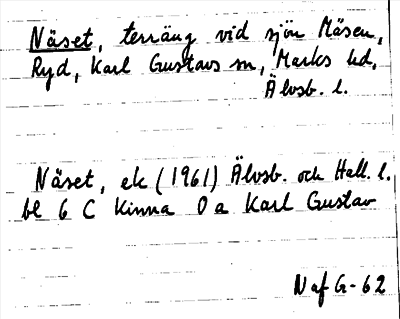 Näset, terräng vid sjön Mäsen,
Ryd, Karl Gustavs sn, Marks hd,
Älvsb. l.
Näset, ek (1961) Älvsb. och Hall. l.
bl 6 C Kinna 0 a Karl Gustav
N af G-62